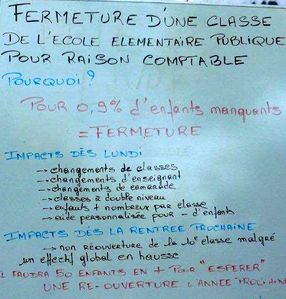 FERMETURE D'UNE CLASSE
DE L'ECOLE ELEMENTAIRE PUBLIQUE
POUR RAISON COMPTABLE
POURQUOI?
POUR 0,9% d'enfants manquants
= FERMETURE
IMPACTS DÈS LUNDI
→ changements de classes
→ changements d'enseignant
→ changements de camarade
→ classes à double niveau
→ enfants + nombreux par classe
→ aide personnalisée pour - d'enfants
IMPACTS DÈS LA RENTREE PROCHAINE
→ non réouverture de la 10e classe malgré
un effectif global en hausse
IL FAUDRA 50 ENFANTS EN + POUR "ESPERER"
UNE RE-OUVERTURE L'ANNEE PROCHAINE